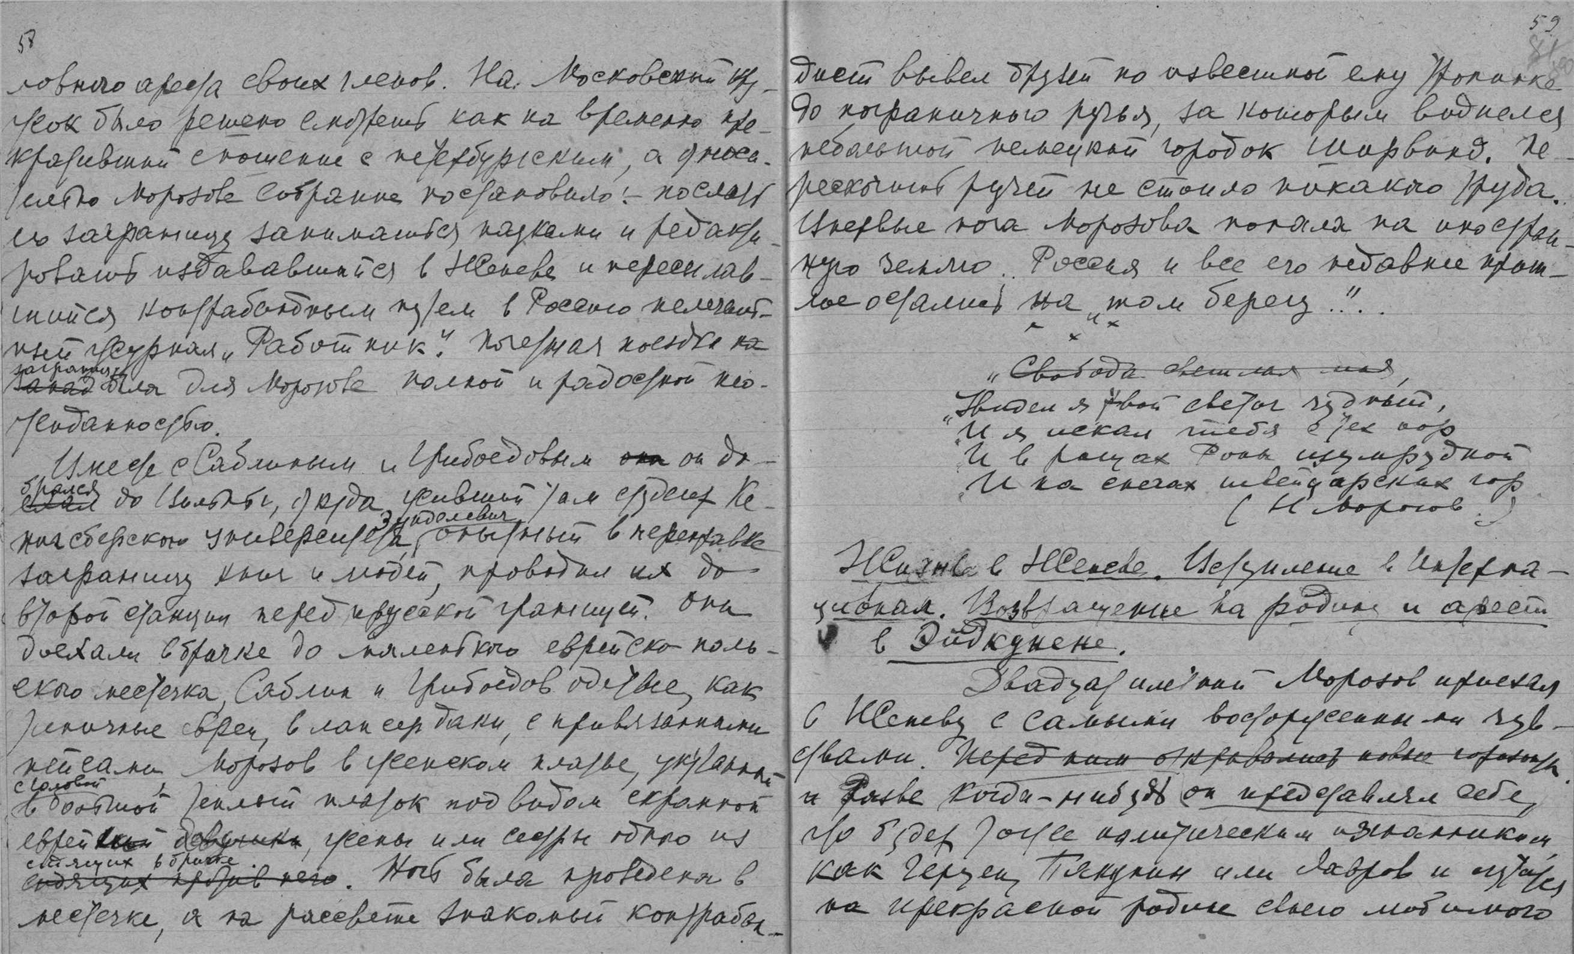 58
ловного ареста своих членов. На Московский кру-
жок было решено смотреть как на временно пре-
кративший сношение с петербургским, а относи-
тельно Морозова собрание постановило: – послать
его заграницу заниматься науками и редакти-
ровать издававшийся в Женеве и пересылав-
шийся контрабандным путем в Россию нелегаль-
ный журнал „Работник“. Почетная поездка на
заграницу
запад была для Морозова полной и радостной нео-
жиданностью.
Вместе с Саблиным и Грибоедовым они он до-
брался
ехал до Вильны, откуда живший там студент Ке-
Зунделевич
нигсбергского университета, опытный в переправке
заграницу книг и людей, проводил их до
второй станции перед прусской границей. Они
доехали в бричке до маленького еврейско-поль-
ского местечка, Саблин и Грибоедов одетые, как
типичные евреи, в лапсердаки, с привязанными
пейсами Морозов в женском платье, укутанный
с головой
в большой теплый платок под видом скромной
еврейской девушки, жены или сестры одного из
сидящих в бричке.
сидящих против него. Ночь была проведена в
местечке, а на рассвете знакомый контрабан-
59
81
дист вывел друзей по известной ему тропинке
до пограничного ручья, за которым виднелся
небольшой немецкий городок Ширвинд. Пе-
рескочить ручей не стоило никакого труда.
Впервые нога Морозова попала на иностран-
ную землю. Россия и все его недавнее прош-
лое остались на „том берегу“...
„Свобода светлая моя,
„Увидел я твой светоч чудный,
„И я искал тебя с тех пор
И в рощах Роны изумрудной
И на снегах швейцарских гор
( Н Морозов )
Жизнь в Женеве. Вступление в Интерна-
ционал. Возвращение на родину и арест
в Эйдкунене.
Двадцатилетний Морозов приехал
в Женеву с самыми восторженными чув-
ствами. Перед ним открывались новые горизонты.
и Разве когда-нибудь он представлял себе,
что будет тоже политическим изгнанником,
как Герцен, Бакунин или Лавров и очутится
на прекрасной родине своего любимого